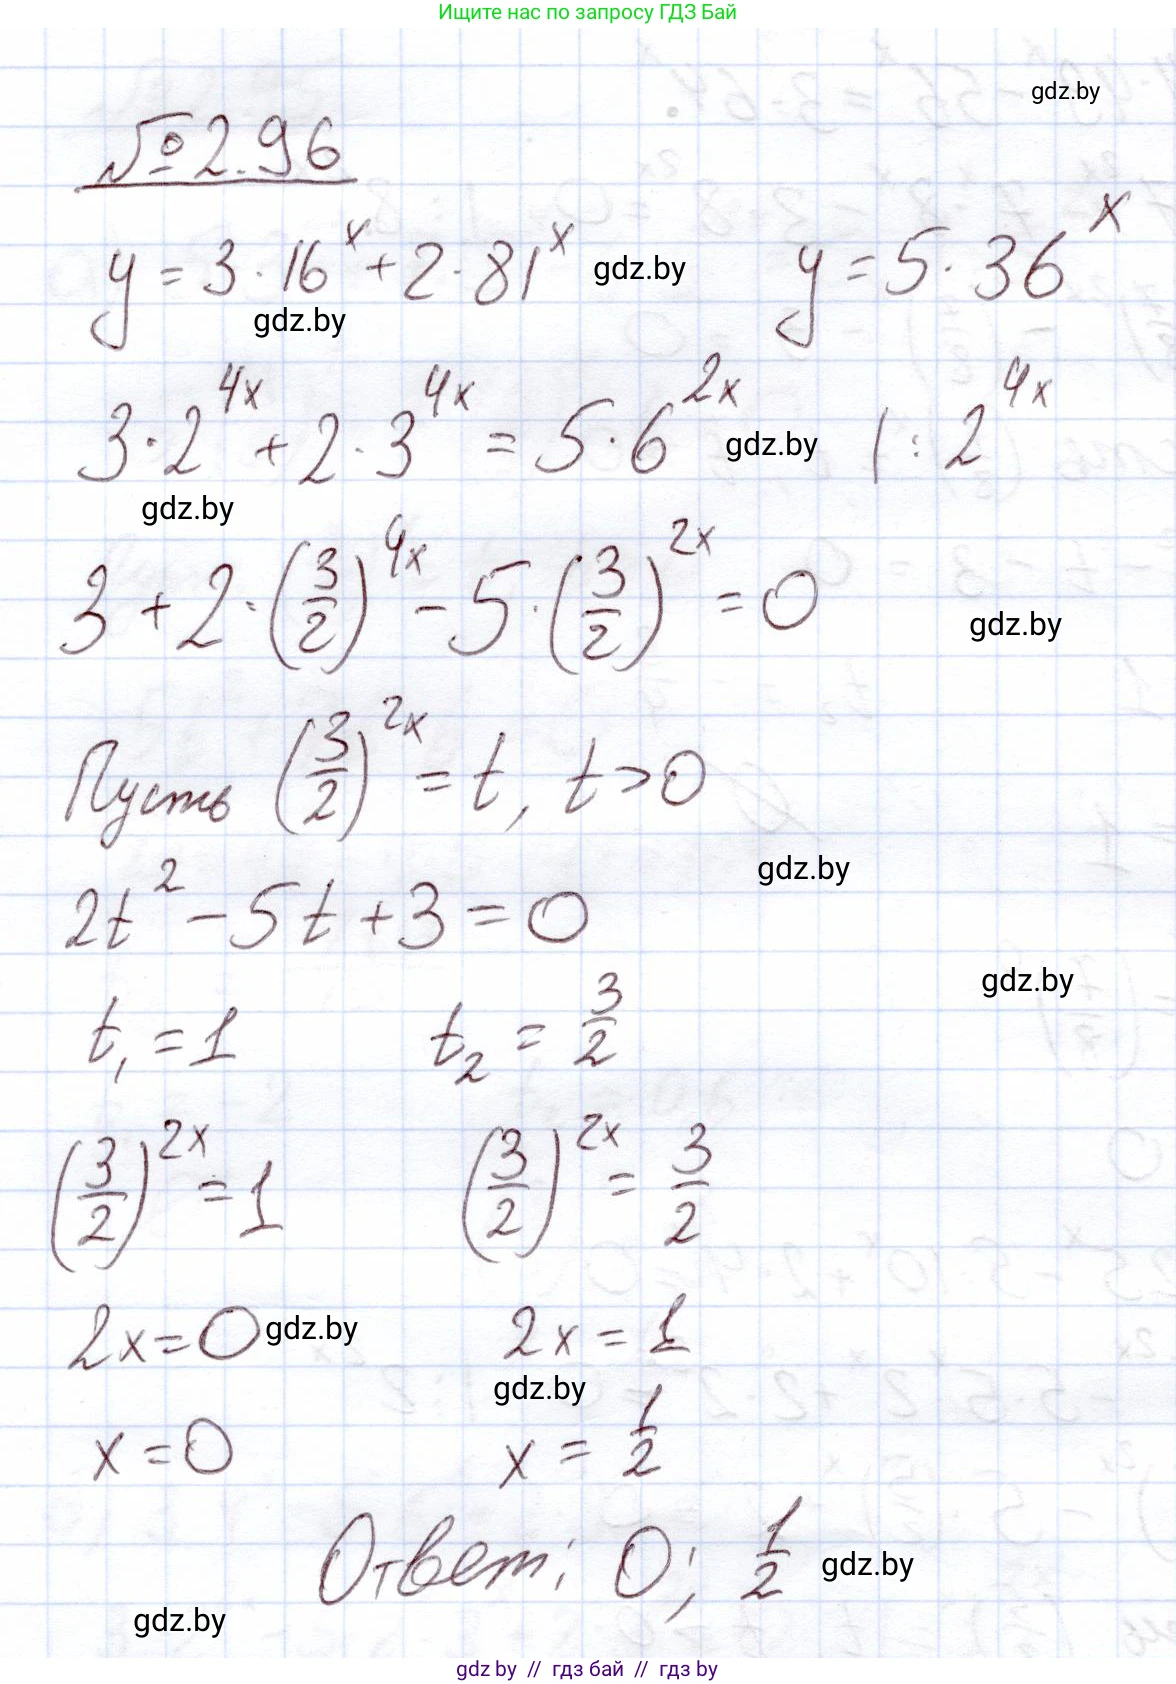 Ищите нас по запросу ГДЗ Бай
gdz.by
№ 2.96
y = 3 · 16^x + 2 · 81^x gdz.by y = 5 · 36^x
gdz.by
3 · 2^{4x} + 2 · 3^{4x} = 5 · 6^{2x} gdz.by | : 2^{4x}
gdz.by
3 + 2 · (3/2)^{4x} - 5 · (3/2)^{2x} = 0 gdz.by
Пусть (3/2)^{2x} = t, t > 0
gdz.by
2t^2 - 5t + 3 = 0
gdz.by
t_1 = 1 t_2 = 3/2
(3/2)^{2x} = 1 (3/2)^{2x} = 3/2
2x = 0 gdz.by 2x = 1
gdz.by
x = 0 x = 1/2
Ответ: 0; 1/2 gdz.by
gdz.by
gdz by // гдз бай // гдз by